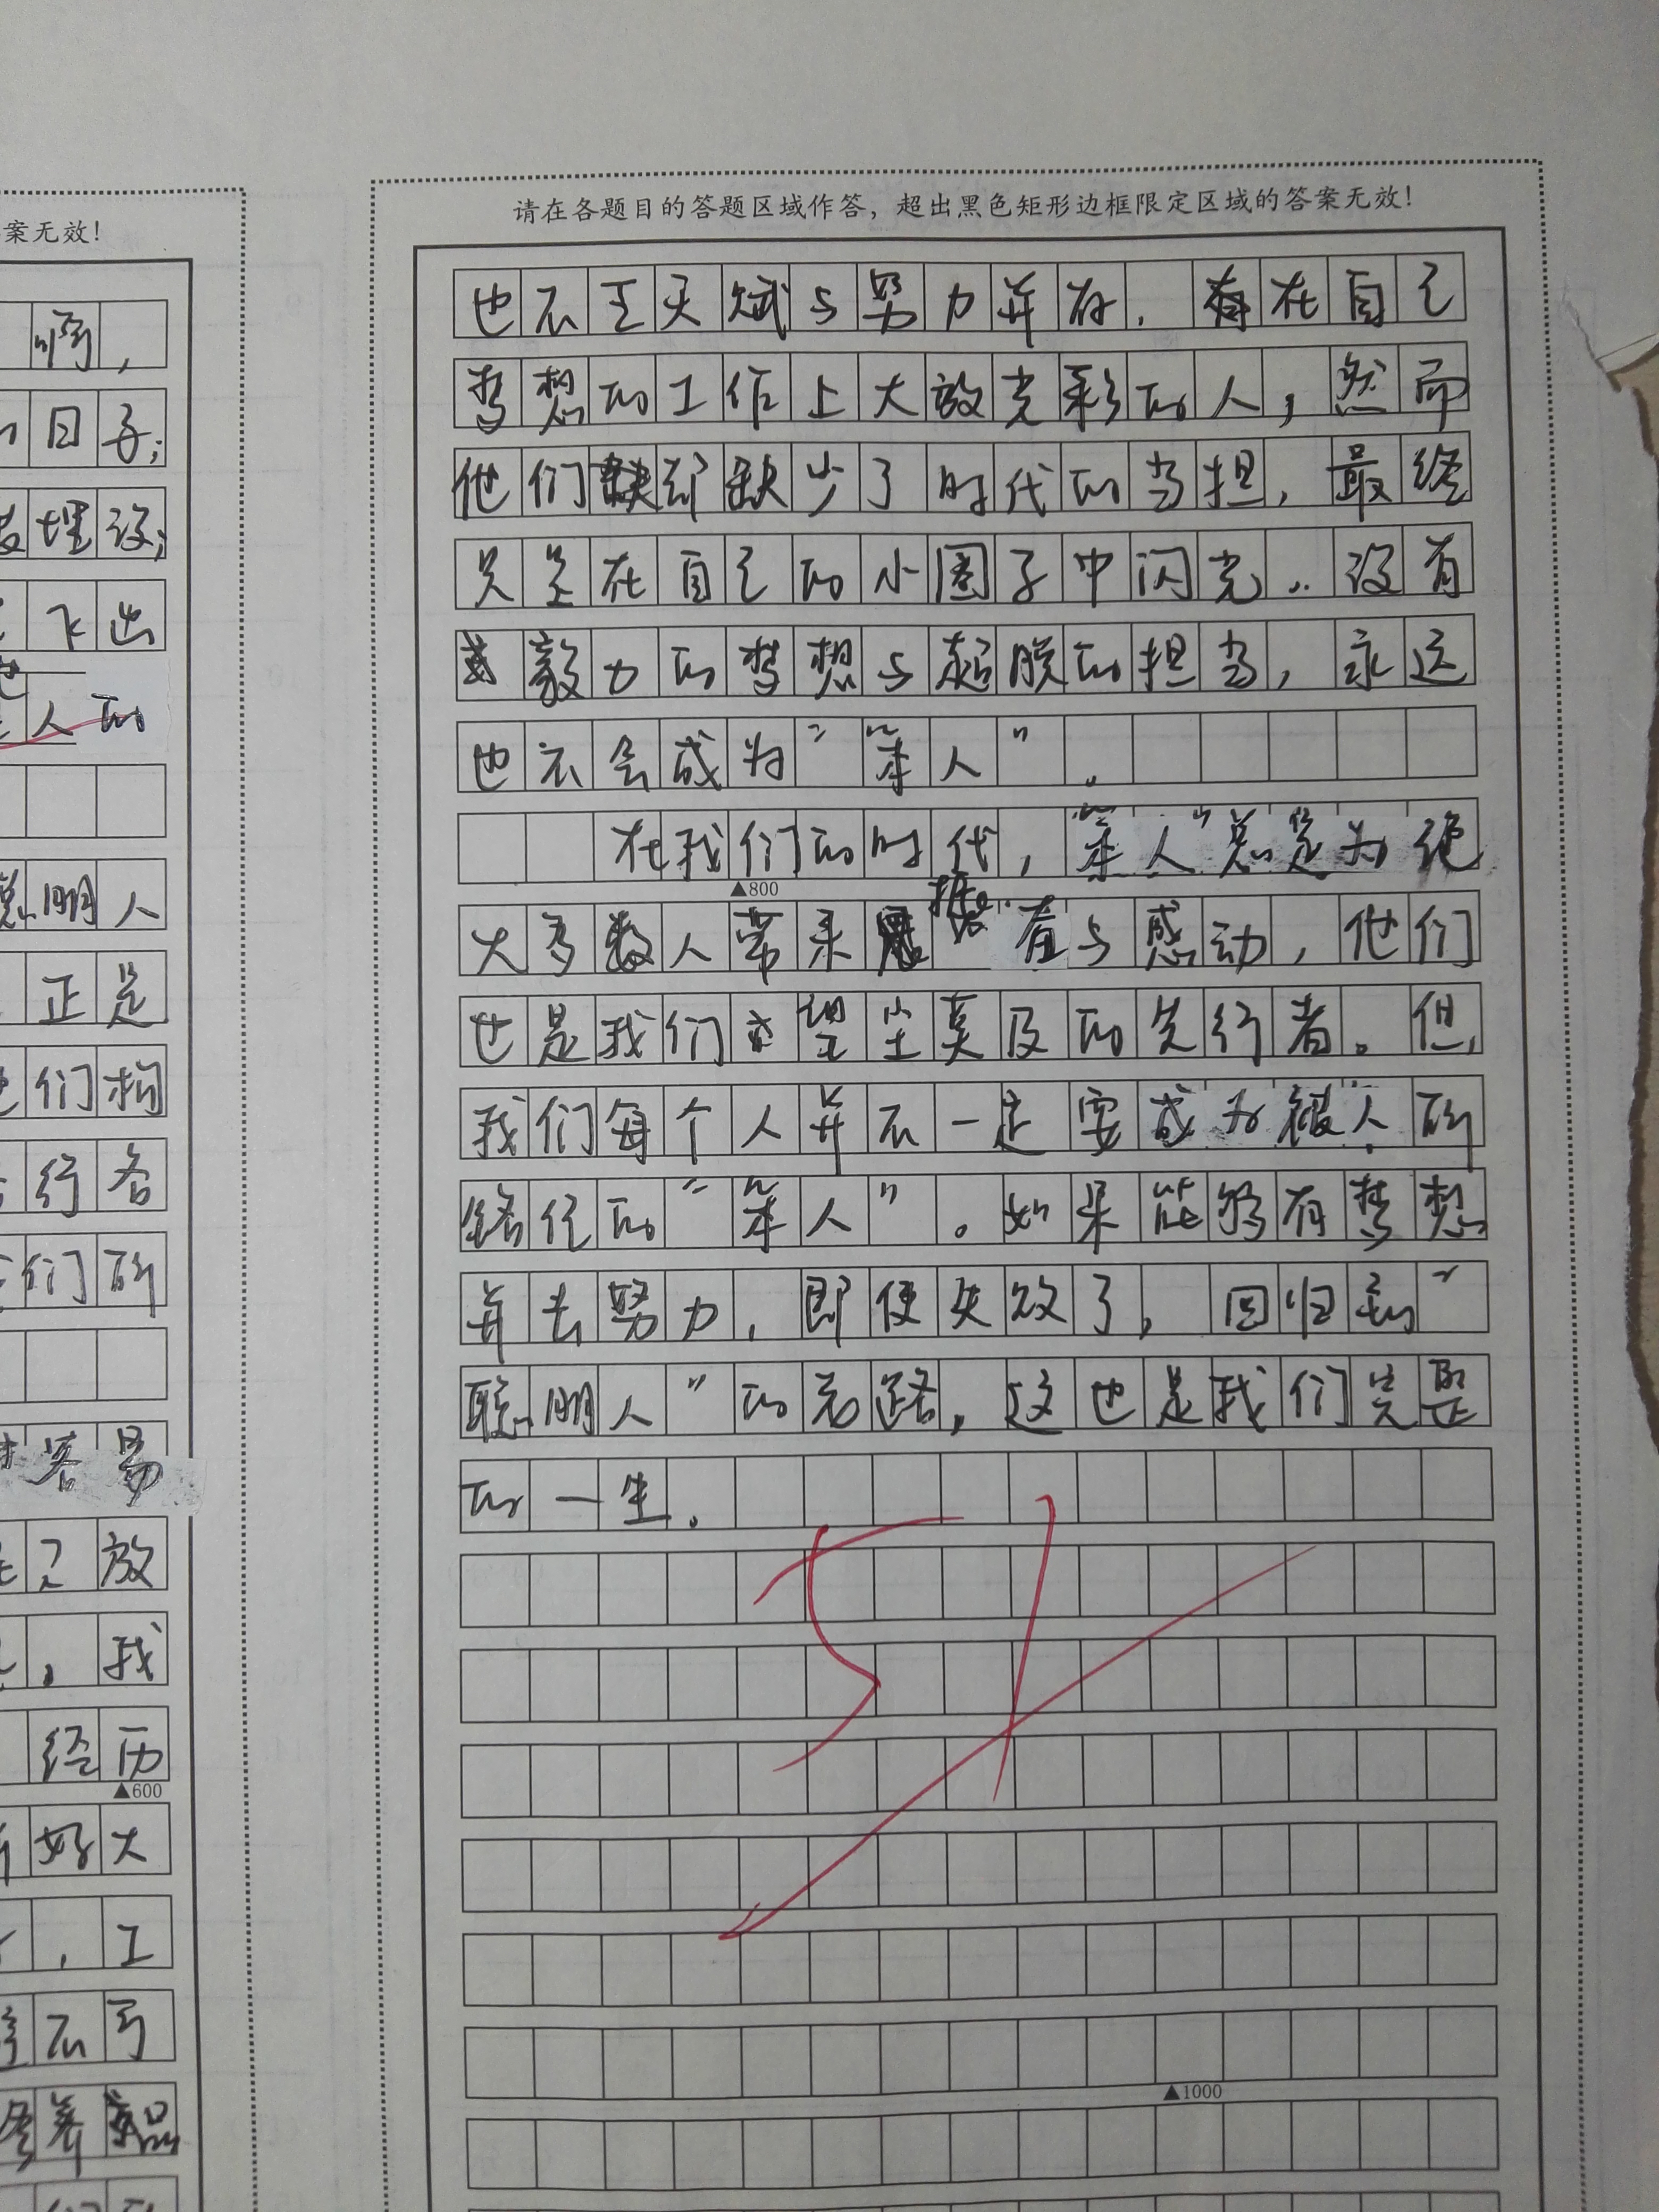 案无效!
啊,
日子;
埋没;
飞出
人的
聪明人
正是
们构
行各
们所
容易
己放
,我
经历
▲600
好大
,工
不亏
养品
请在各题目的答题区域作答,超出黑色矩形边框限定区域的答案无效!
也不乏天赋与努力并存,在自己
梦想的工作上大放光彩的人,然而
他们却缺少了时代的当担,最终
只是在自己的小圈子中闪光..没有
毅力的梦想与超脱的担当,永远
也不会成为“笨人”。
在我们的时代,“笨人”总是为绝
▲800
大多数人带来着与感动,他们
也是我们望尘莫及的先行者。但,
我们每个人并不一定要成为被人所
铭记的“笨人”。如果能够有梦想
并去努力,即使失败了,回归到“
聪明人”的老路,这也是我们完整
的一生.
51
▲1000